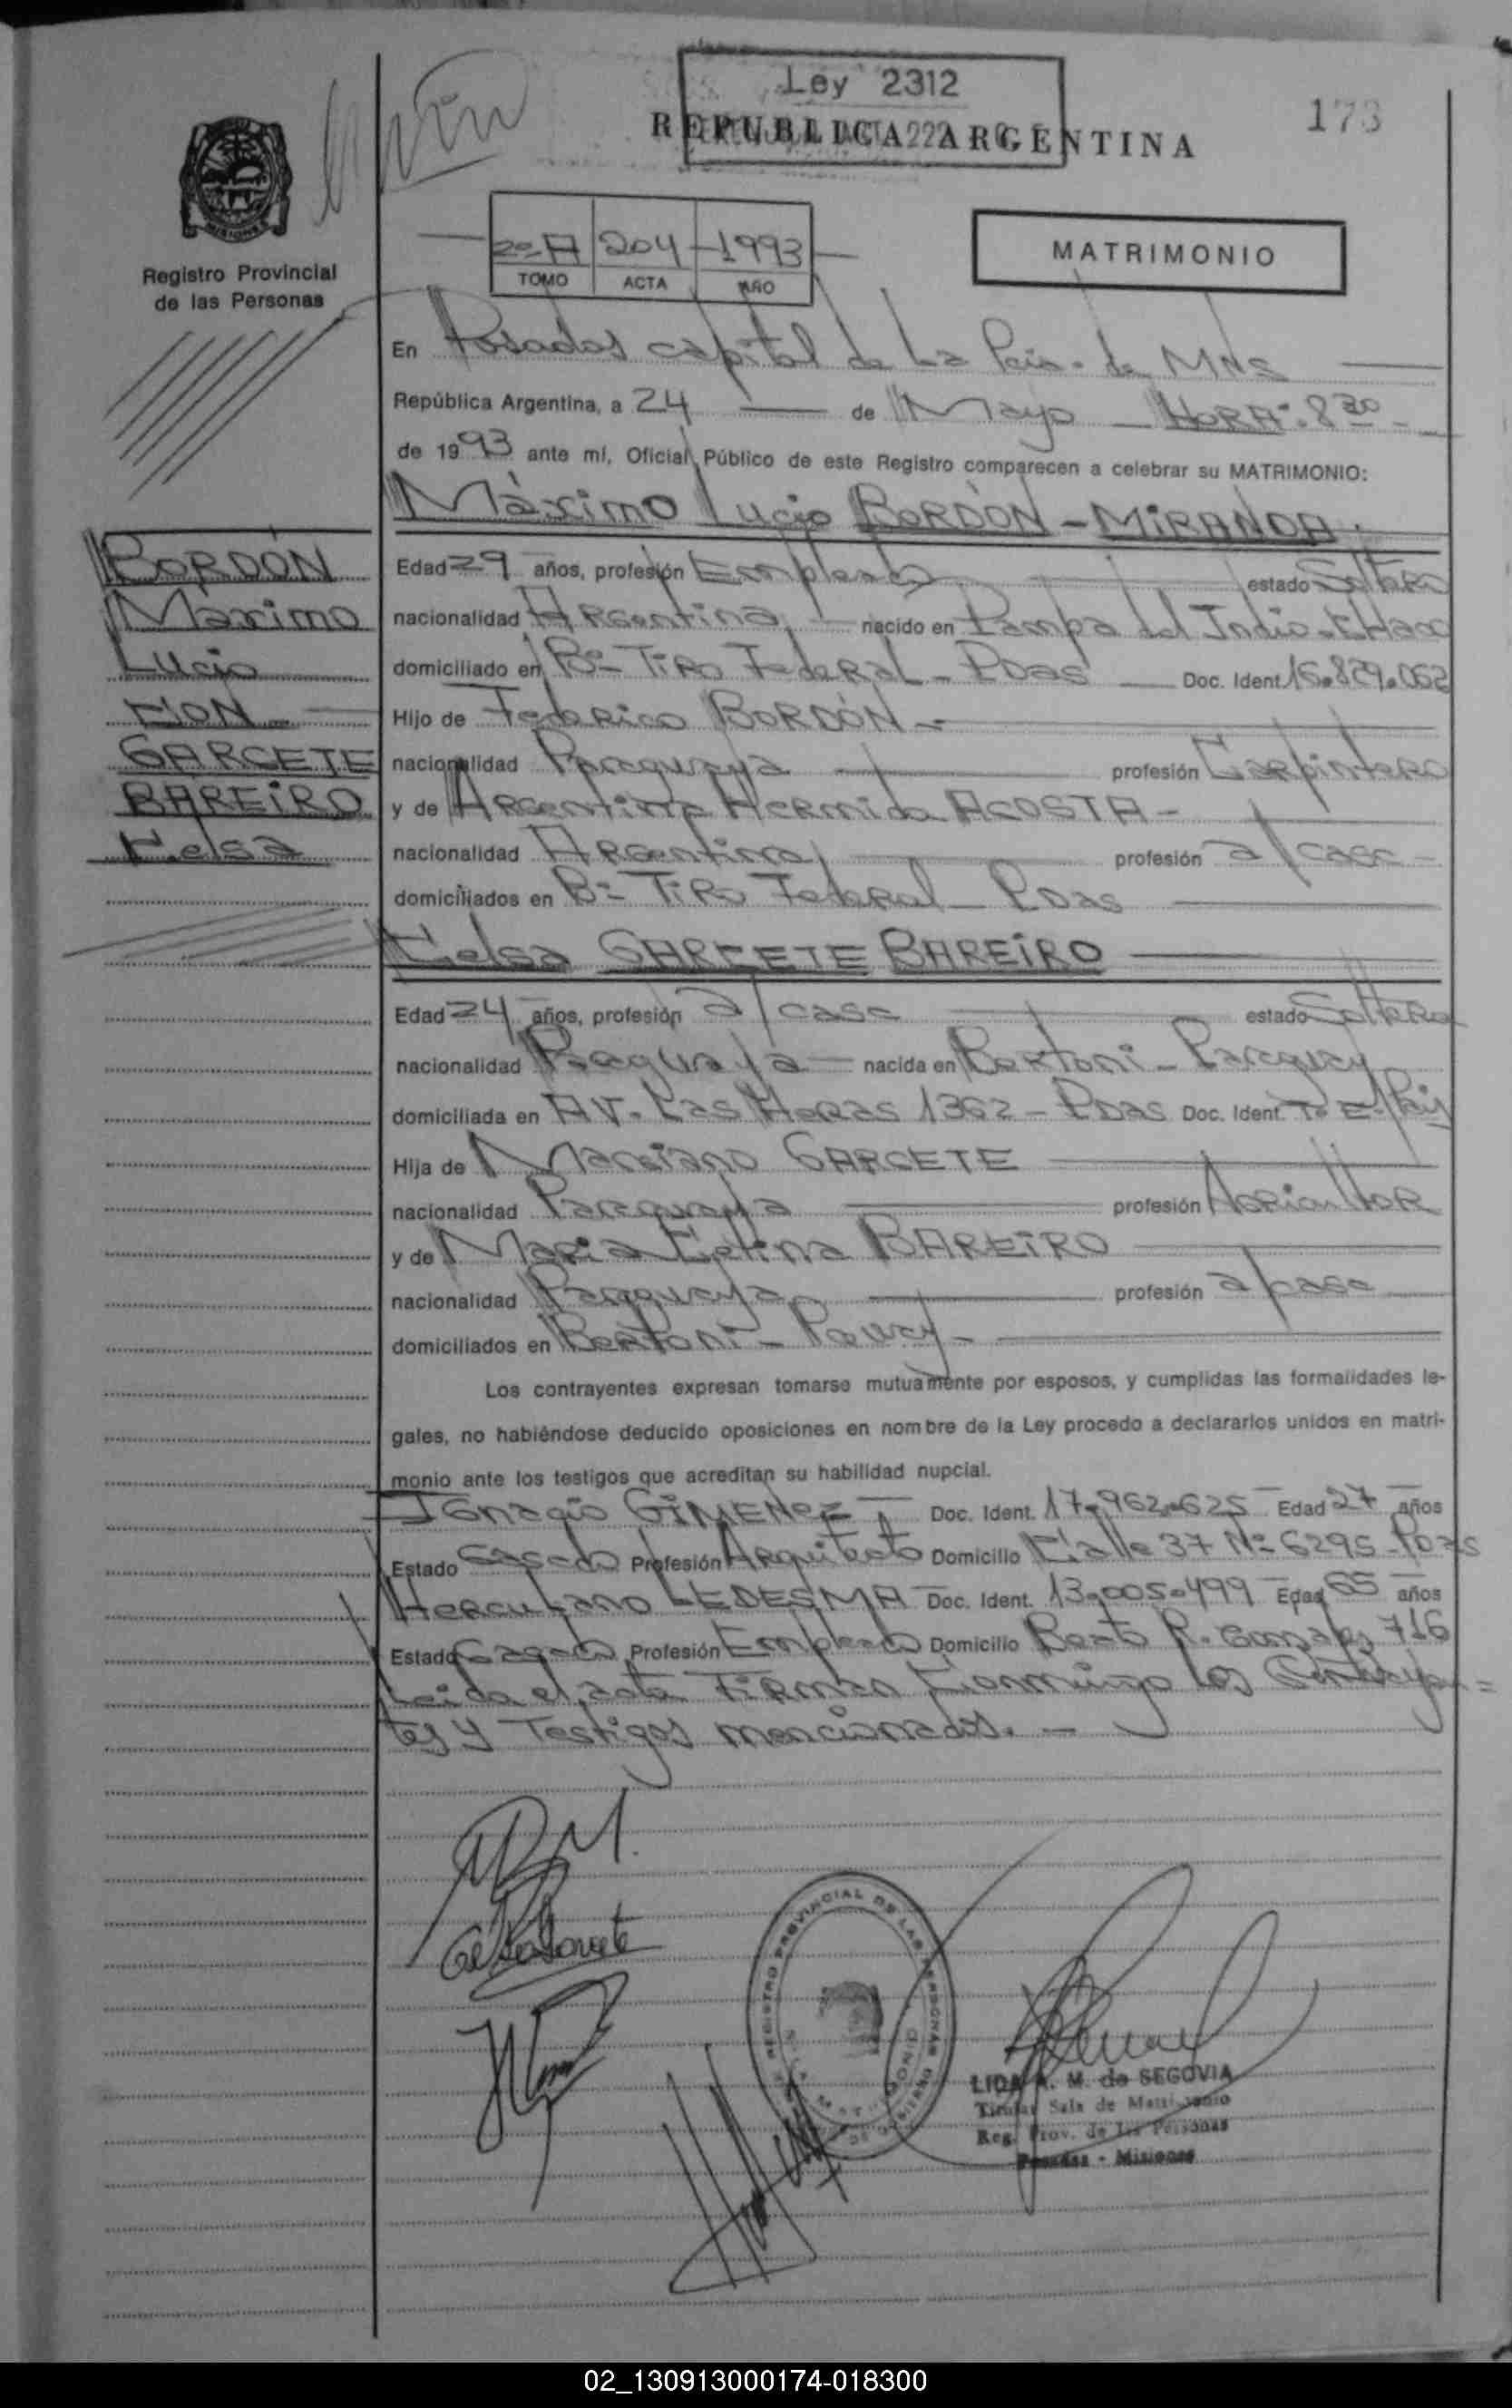 Ley 2312
REPUBLICA ARGENTINA
173
2º A 204 1993
TOMO ACTA AÑO
MATRIMONIO
MISIONES
Registro Provincial
de las Personas
En Posadas capital de La Pcia. de Mnes
República Argentina, a 24 de Mayo HORA: 8 30
de 1993 ante mí, Oficial Público de este Registro comparecen a celebrar su MATRIMONIO:
Máximo Lucio BORDÓN - MIRANDA
BORDÓN
Máximo
Lucio
CON
GARCETE
BAREIRO
Celsa
Edad 29 años, profesión Empleado estado Soltero
nacionalidad Argentina nacido en Pampa del Indio - Chaco
domiciliado en Bº Tiro Federal - Pdas Doc. Ident. 16.829.062
Hijo de Federico BORDÓN -
nacionalidad Paraguaya profesión Carpintero
y de Argentina Hermida ACOSTA -
nacionalidad Argentina profesión a/casa -
domiciliados en Bº Tiro Federal - Pdas
Celsa GARCETE BAREIRO
Edad 24 años, profesión a/casa estado Soltera
nacionalidad Paraguaya nacida en Bertoni - Paraguay
domiciliada en AV. Las Heras 1362 - Pdas Doc. Ident.
Hija de Marciano GARCETE
nacionalidad Paraguaya profesión Agricultor
y de Maria Celina BAREIRO
nacionalidad Paraguaya profesión a/casa
domiciliados en Bertoni -
Los contrayentes expresan tomarse mutuamente por esposos, y cumplidas las formalidades le-
gales, no habiéndose deducido oposiciones en nombre de la Ley procedo a declararlos unidos en matri-
monio ante los testigos que acreditan su habilidad nupcial.
Ignacio GIMENEZ Doc. Ident. 17.962.625 Edad 27 años
Estado Casado Profesión Arquitecto Domicilio Calle 37 Nº 6295 - Pdas
Herculano LEDESMA Doc. Ident. 13.005.499 Edad 65 años
Estado Casado Profesión Empleado Domicilio R. Gonzalez 716
Leida el acta Firman Conmigo los Contrayen=
tes y Testigos mencionados. -
REGISTRO PROVINCIAL DE LAS PERSONAS
LIDA A. M. de SEGOVIA
Titular Sala de Matrimonio
Reg. Prov. de las Personas
Posadas - Misiones
02_130913000174-018300